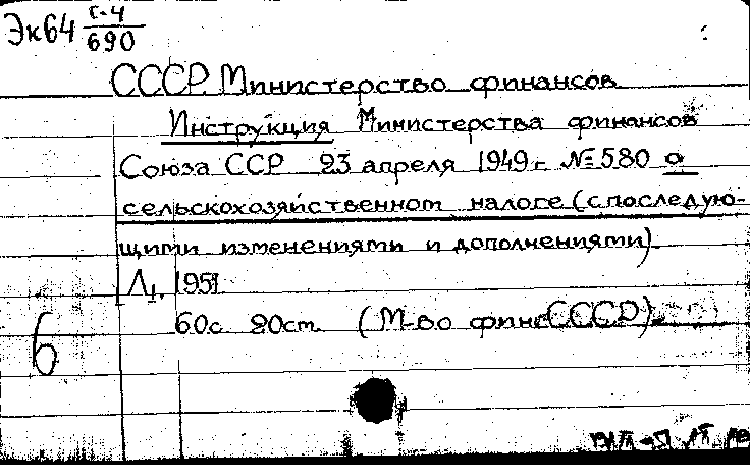 Эк64 С-4/690
СССР. Министерство финансов
Инструкция Министерства финансов
Союза ССР 23 апреля 1949 г. № 580 о
сельскохозяйственном налоге (с последую-
щими изменениями и дополнениями).
Л., 1951
60с. 20см. (М-во фин. СССР).
6